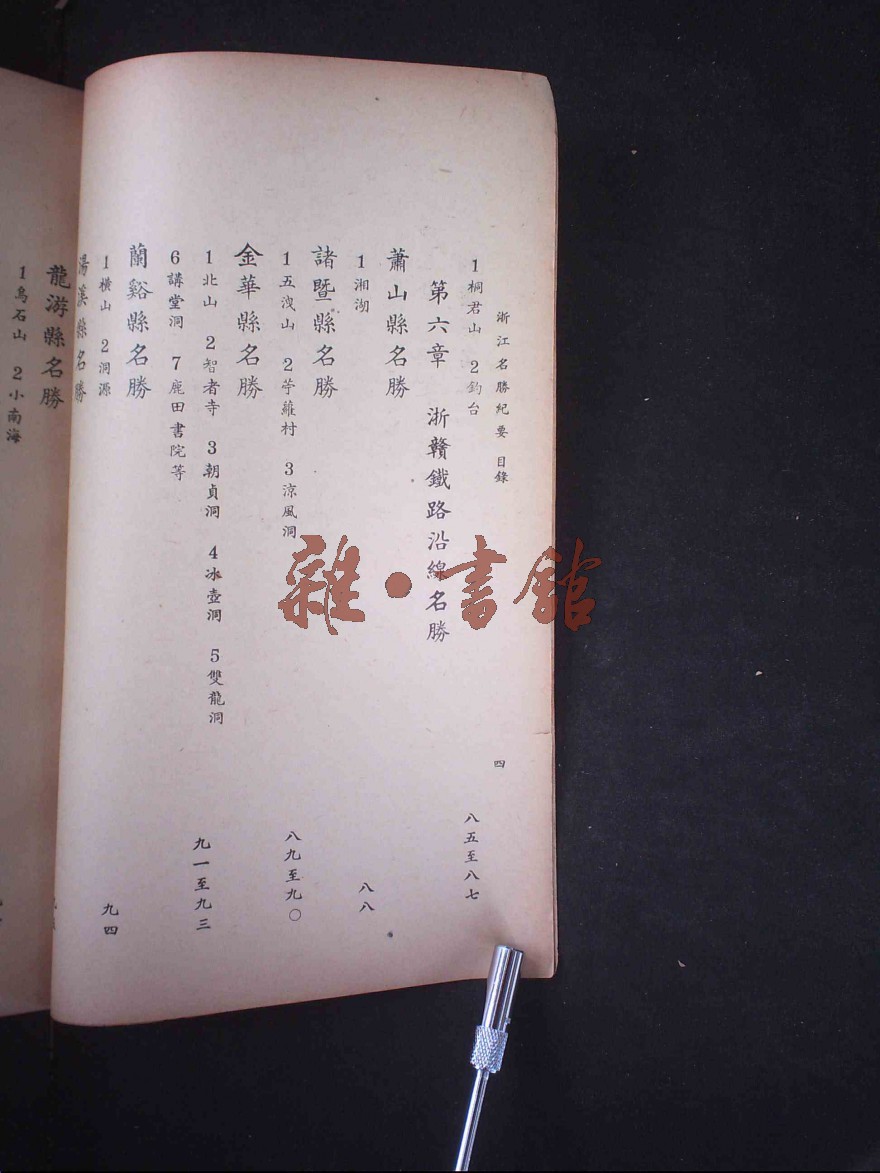 浙江名勝紀要 目錄 四
1桐君山 2釣台 八五至八七
第六章 浙贛鐵路沿線名勝
蕭山縣名勝
1湘湖 八八
諸暨縣名勝
1五洩山 2苧蘿村 3涼風洞 八九至九〇
金華縣名勝
1北山 2智者寺 3朝貞洞 4冰壺洞 5雙龍洞
6講堂洞 7鹿田書院等 九一至九三
蘭谿縣名勝
1橫山 2洞源 九四
湯溪縣名勝
龍游縣名勝
1鳥石山 2小南海
雜·書館